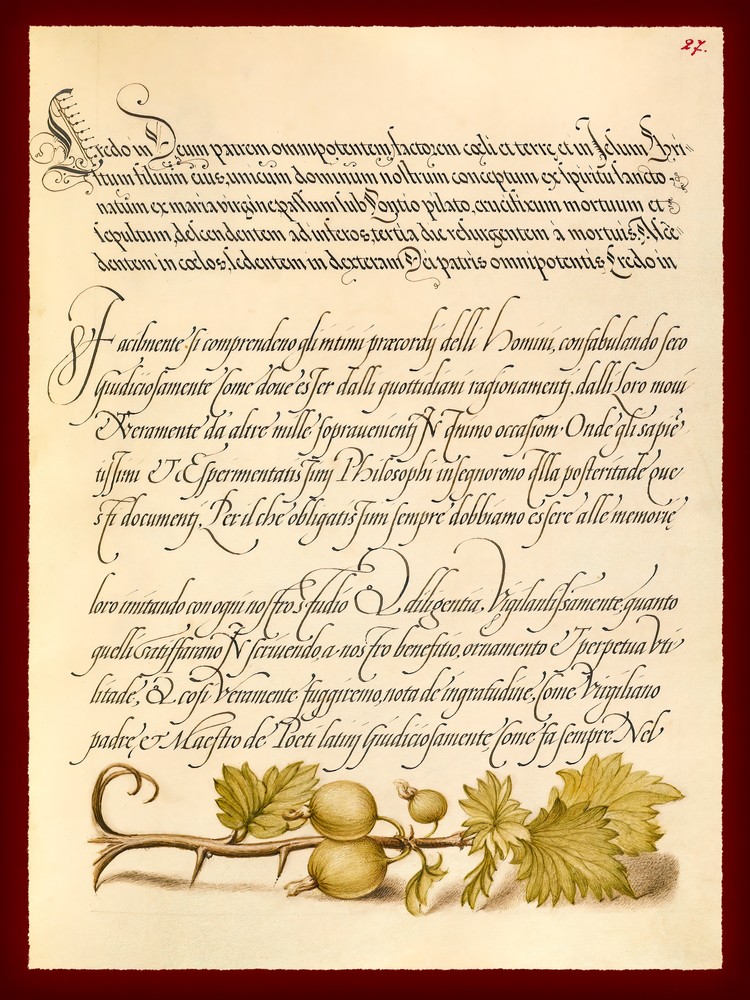 27.
Credo in Deum patrem omnipotentem factorem cœli et terre, et in Jesum Chri-
stum filium eius, unicum dominum nostrum conceptum ex spiritu sancto
natum ex maria virgine, passum sub Pontio pilato, crucifixum mortuum et
sepultum, descendentem ad inferos, tertia die resurgentem á mortuis, Ascē
dentem in cœlos, sedentem in dexteram Dei patris omnipotentis, Credo in
Facilmente si comprendeno gli intimi præcordij delli Homini, confabulando seco
Giudiciosamente Come doue esser dalli quottidiani ragionamentj, dalli Loro moui
& Veramente da altre mille sopraueninentj N Animo occasioni. Onde gli sapiē
tissimi Et Esperimentatissimj Philosophi insegnorono Alla posteritade Que
sti documentj. Per il che obligatissimi sempre dobbiamo essere alle memorie
loro imitando con ogni nostro studio & diligentia Vigilantissamente, quanto
quelli satisffarano N scriuendo, a nostro benefitio, ornamento Et perpetua vti
litade, & cosi Veramente fuggiremo, nota de ingratudine, Come Virgiliano
padre, & Maestro de Poeti latinj Giudiciosamente Come fa sempre Nel